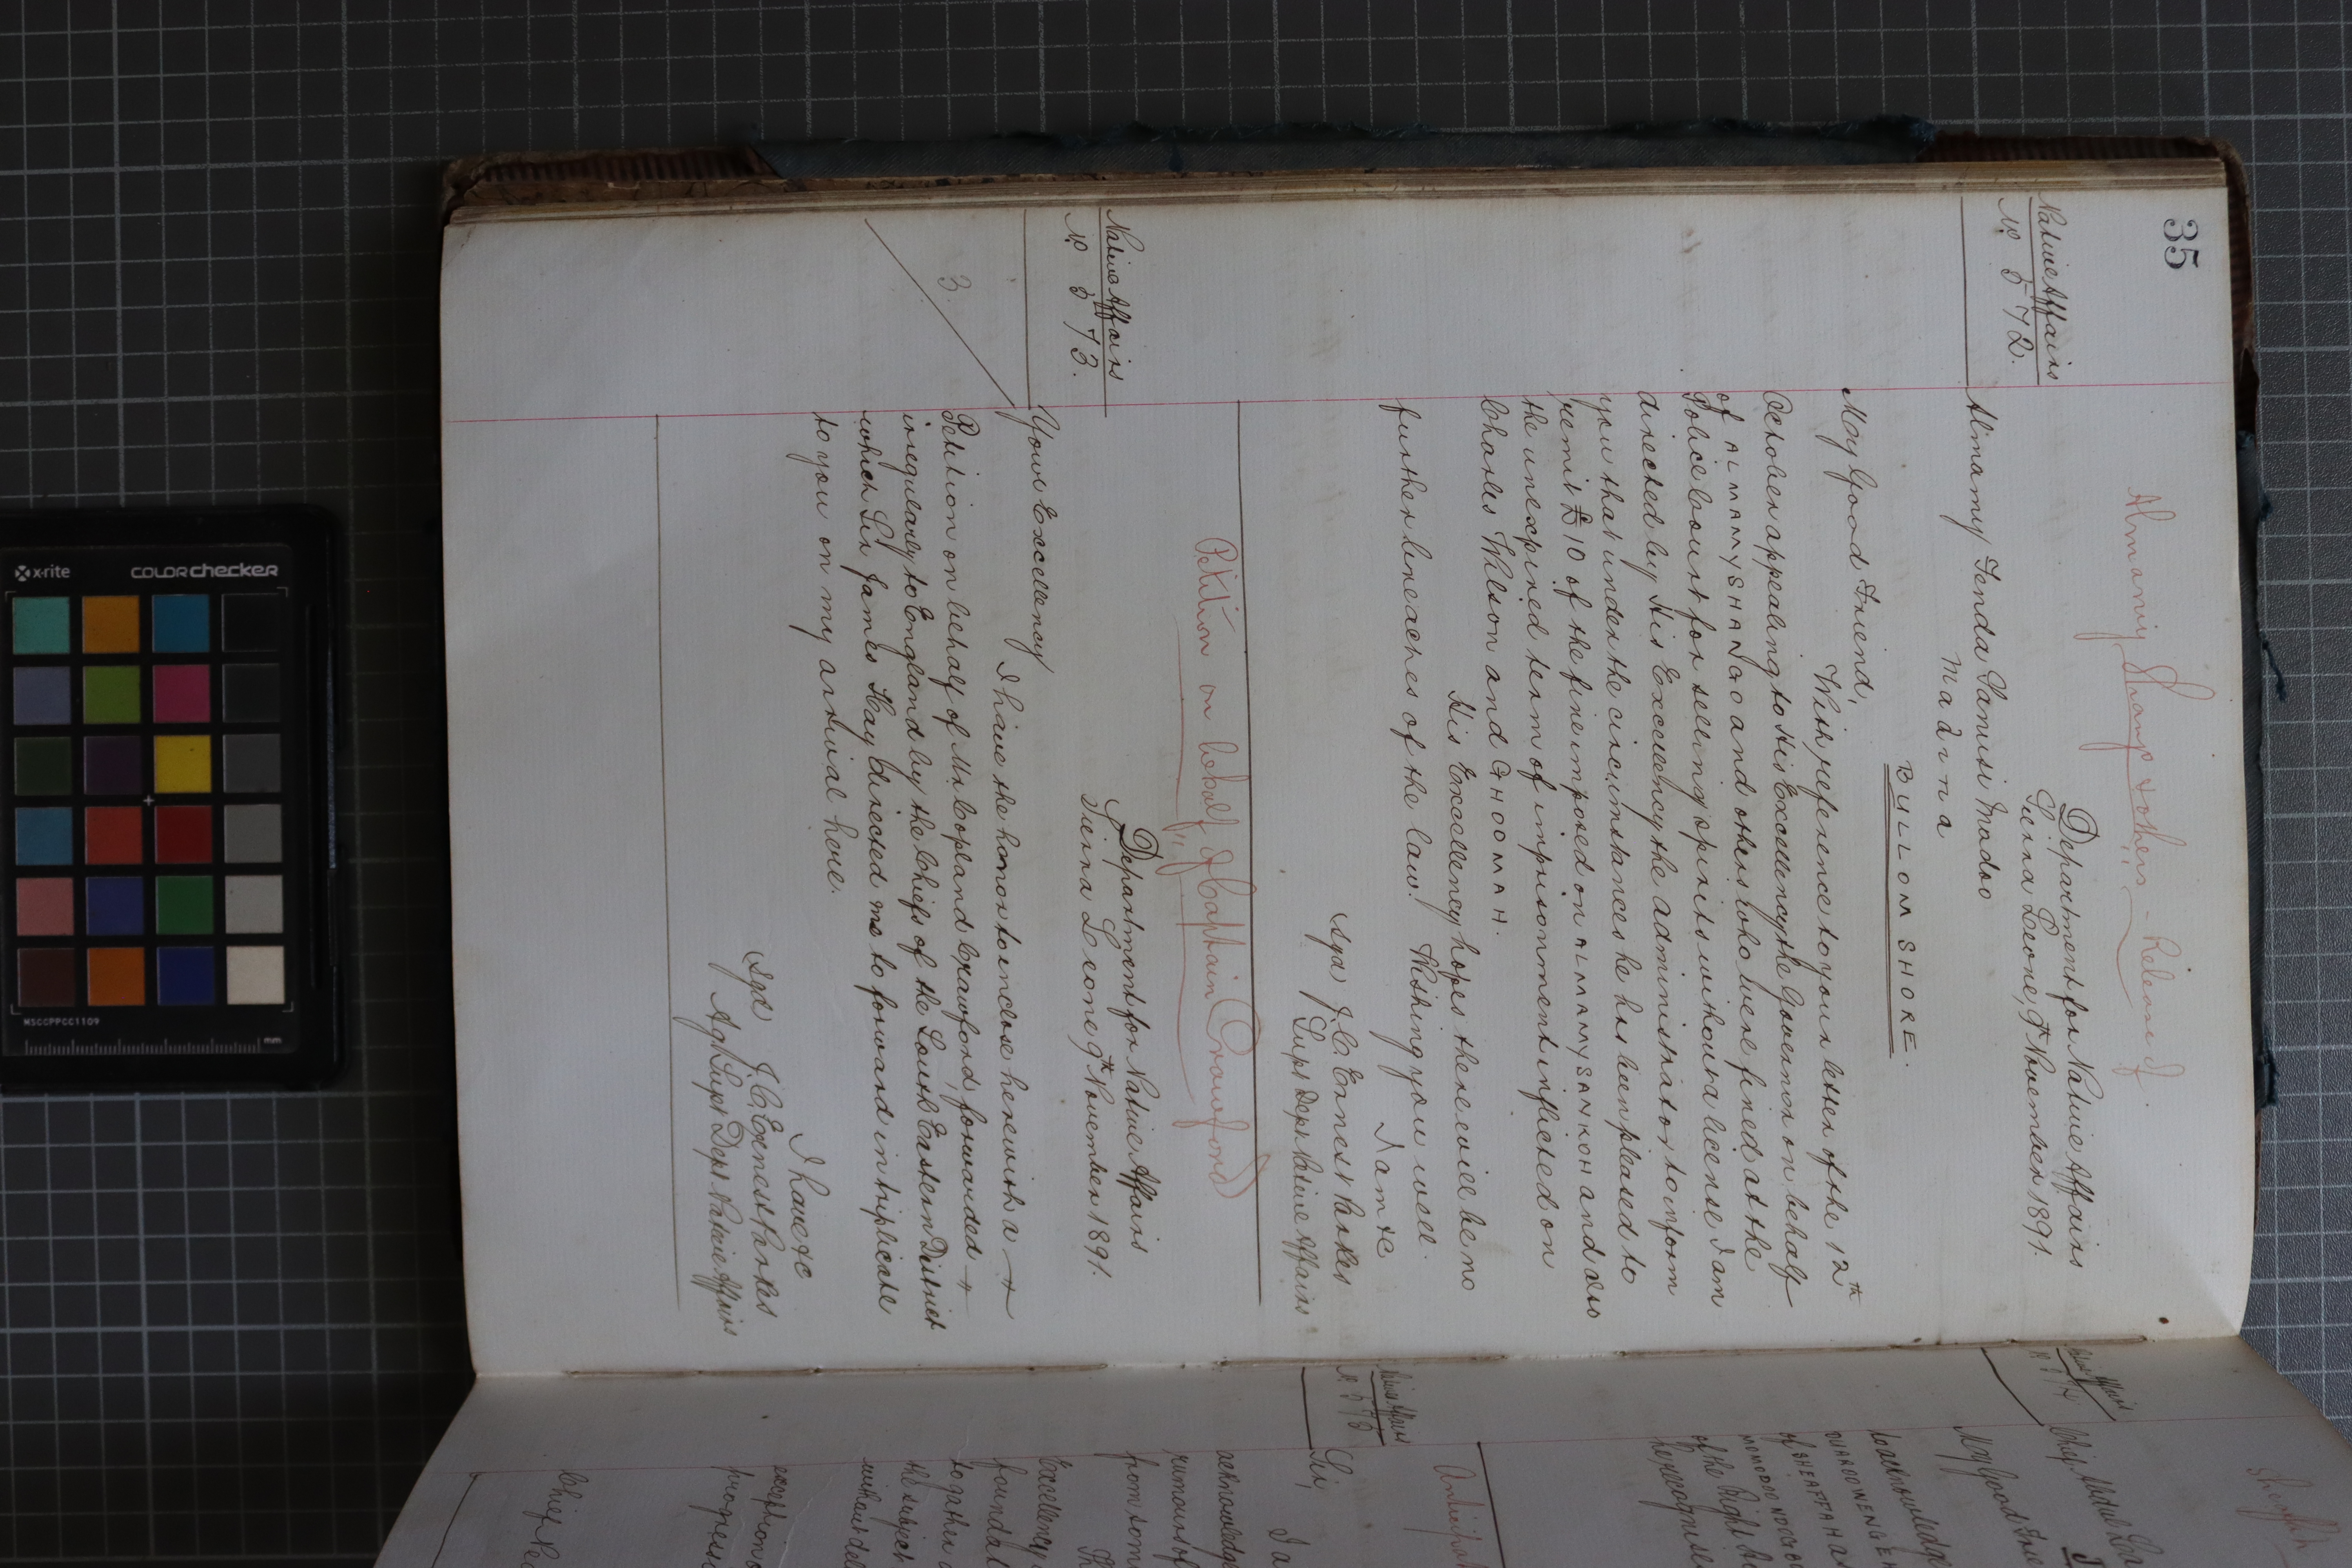 35
Almamy Shanga & others - Release of
Native Affairs
No. 572.
Department for Native Affairs
Sierra Leone, 9th November 1891.
Alimamy Fenda Sanusi Madoo
Madina
BULLOM SHORE.
My Good Friend,
With reference to your letter of the 12th
October appealing to His Excellency the Governor on behalf
of ALMAMY SHANGO and others who were fined at the
Police Court for selling spirits without a license I am
directed by His Excellency the Administrator to inform
you that under the circumstances he has been pleased to
remit £10 of the fine imposed on ALMAMY SANKOH and also
the unexpired term of imprisonment inflicted on
Charles Wilson and GHOOMAH.
His Excellency hopes there will be no
further breaches of the law. Wishing you well.
I am &c
Sgd J.C. Ernest Parkes
Supt Dept Native Affairs
Petition on behalf of Captain Crawford
Native Affairs
No. 573.
Department for Native Affairs
Sierra Leone 9th November 1891.
Your Excellency
I have the honor to inclose herewith a
Petition on behalf of Mr Copland Crawford, forwarded
irregularly to England by the Chiefs of the South Eastern District
which Sir James Hay directed me to forward in triplicate
to you on my arrival here.
3.
I have &c
Sgd J.C. Ernest Parkes
Ag Supt Dept Native Affairs
Native Affairs
My Good Frie
to acknowledge
of the Right
Native Affairs
No. 575
Sir,
I a
acknowledge
rumours of
from som
Excellency
found al
together
the subject
without del
exception o
x-rite
COLORchecker
MSCCPPCC1109
mm